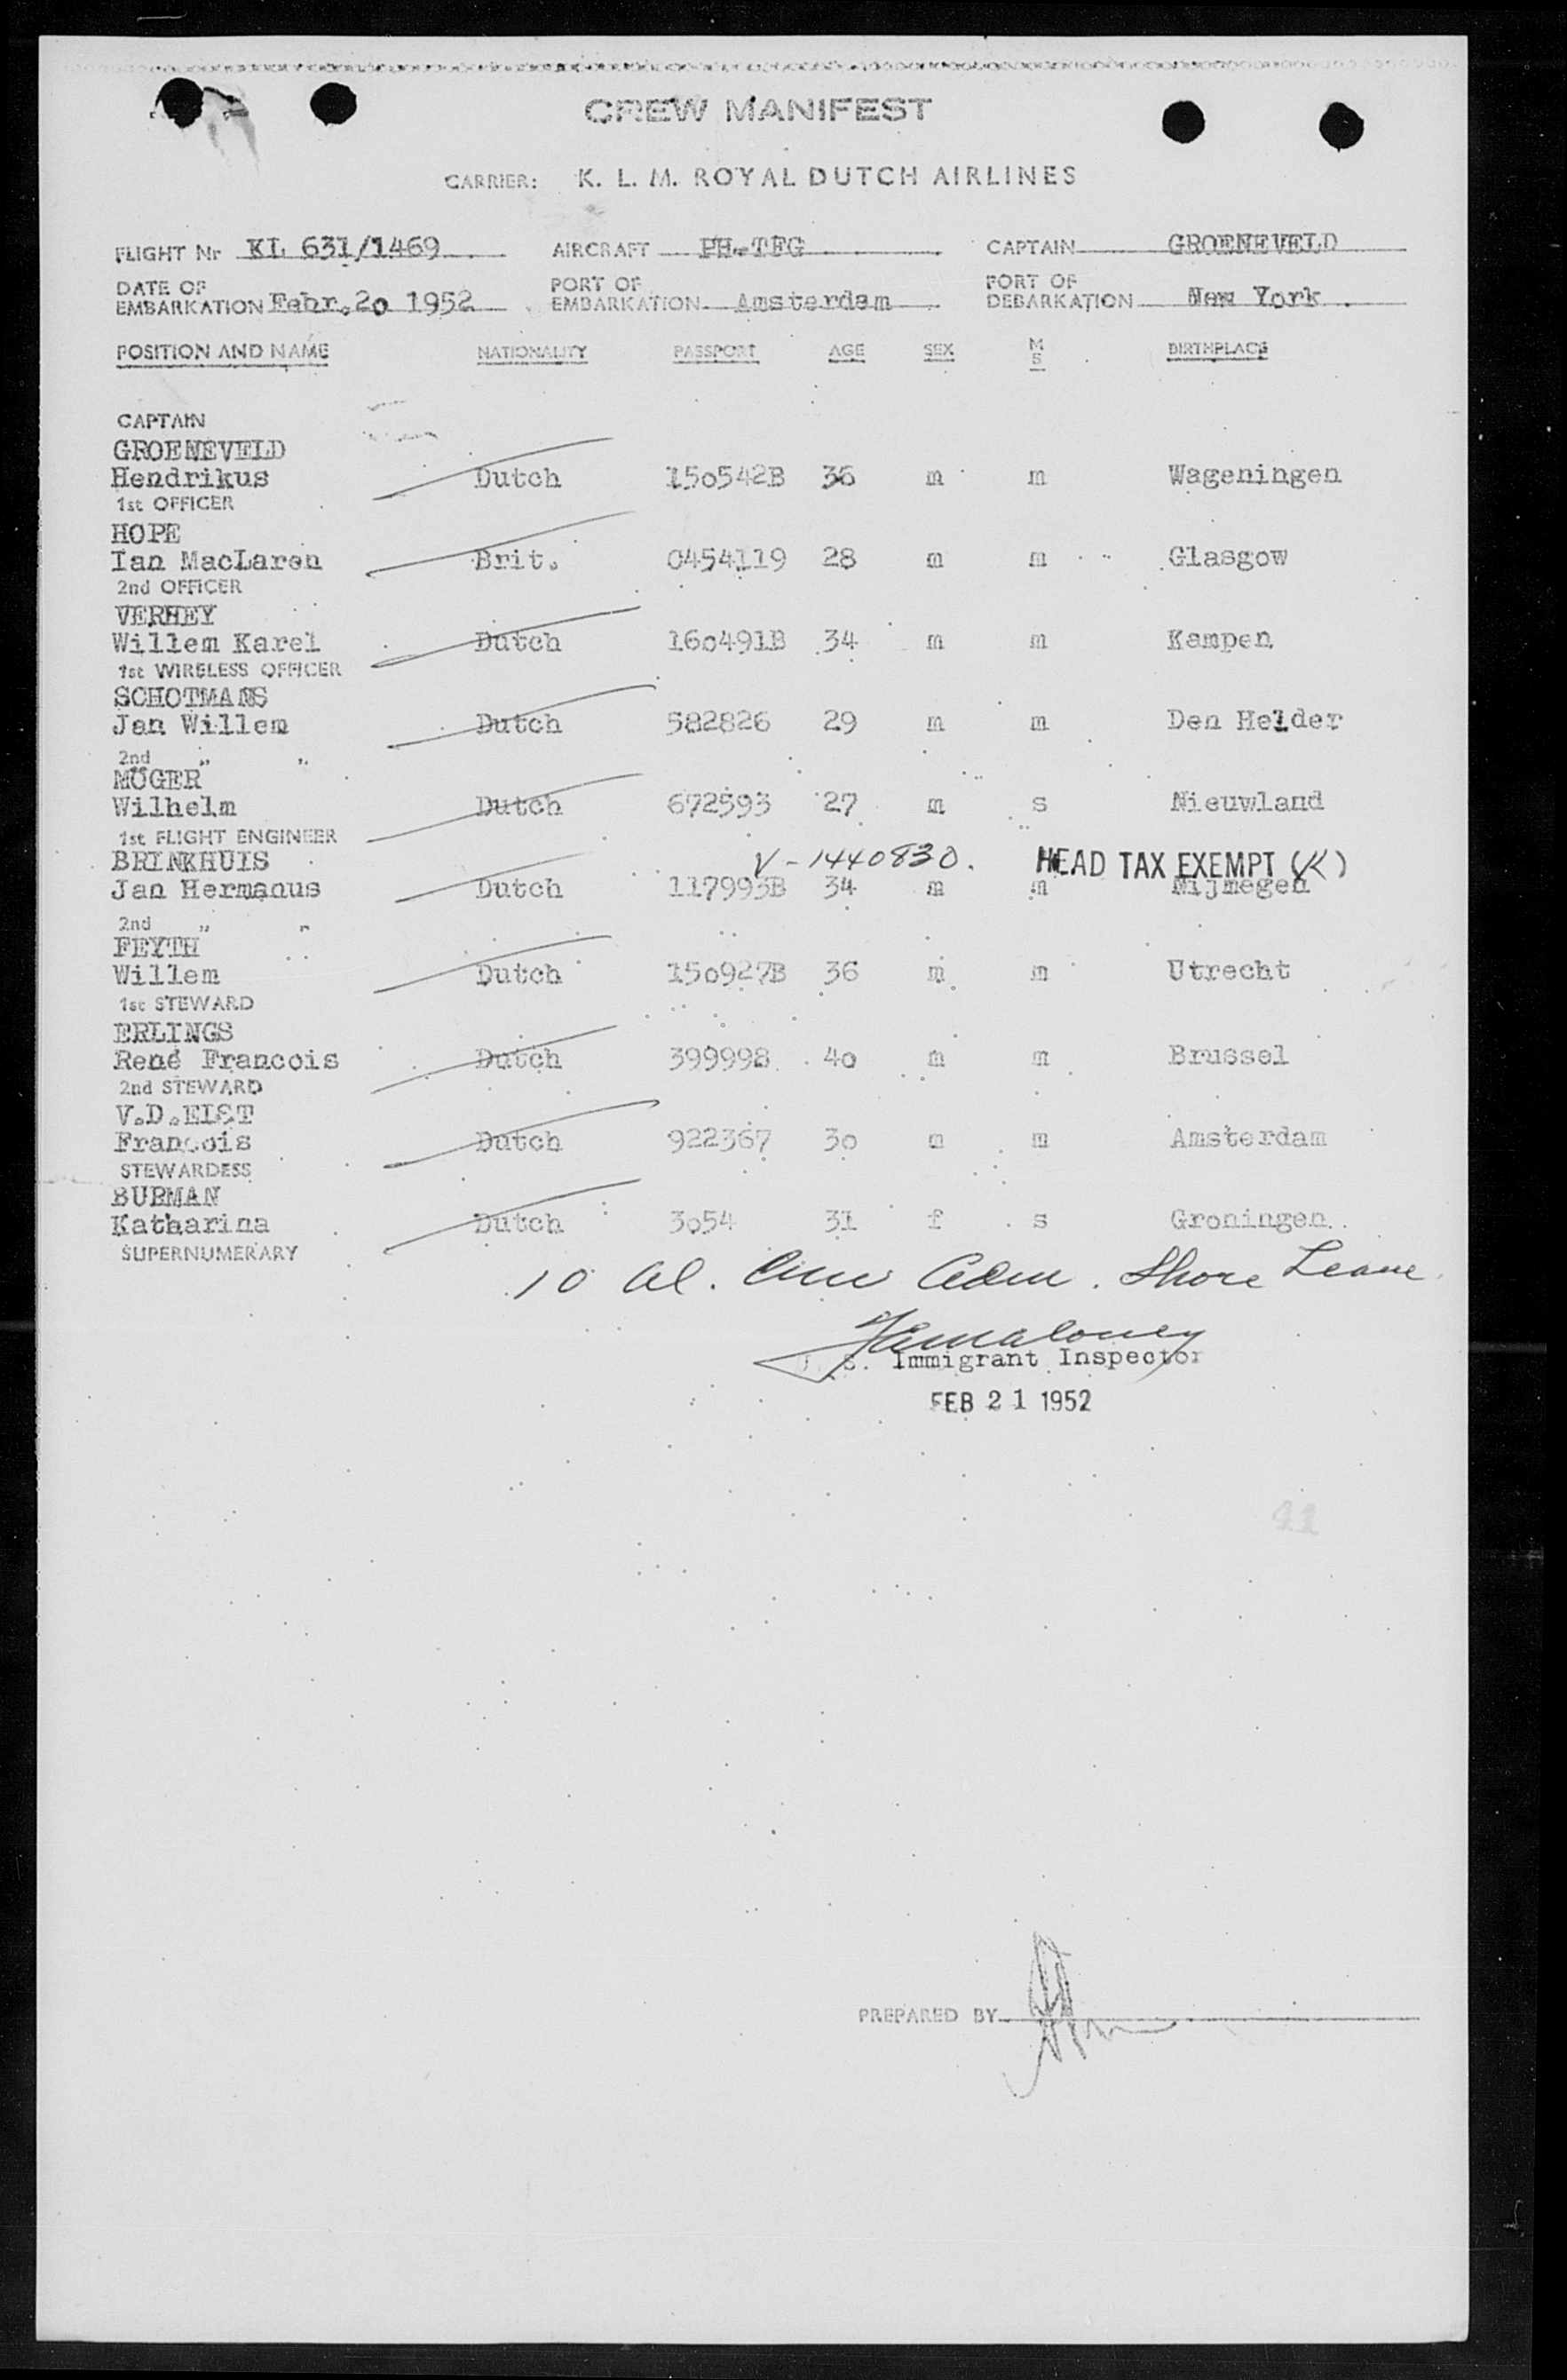 CREW MANIFEST
CARRIER: K. L. M. ROYAL DUTCH AIRLINES
FLIGHT Nr KL 631/1469 AIRCRAFT PH-TFG CAPTAIN GROENEVELD
DATE OF EMBARKATION Febr.2o 1952 PORT OF EMBARKATION Amsterdam PORT OF DEBARKATION New York
POSITION AND NAME NATIONALITY PASSPORT AGE SEX M S BIRTHPLACE
CAPTAIN
GROENEVELD
Hendrikus Dutch 15o542B 36 m m Wageningen
1st OFFICER
HOPE
Ian MacLaren Brit. 0454119 28 m m Glasgow
2nd OFFICER
VERHEY
Willem Karel Dutch 16o491B 34 m m Kampen
1st WIRELESS OFFICER
SCHOTMANS
Jan Willem Dutch 582826 29 m m Den Helder
2nd " "
MÜGER
Wilhelm Dutch 672593 27 m s Nieuwland
1st FLIGHT ENGINEER
BRINKHUIS V-1440830. HEAD TAX EXEMPT (K)
Jan Hermanus Dutch 117993B 34 m m Nijmegen
2nd " "
FEYTH
Willem Dutch 15o927B 36 m m Utrecht
1st STEWARD
ERLINGS
René Francois Dutch 399998 4o m m Brussel
2nd STEWARD
V.D.ELST
François Dutch 922367 3o m m Amsterdam
STEWARDESS
BURMAN
Katharina Dutch 3o54 31 f s Groningen
SUPERNUMERARY
10 al. Crew Adm. Shore Leave
U. S. Immigrant Inspector
FEB 21 1952
41
PREPARED BY